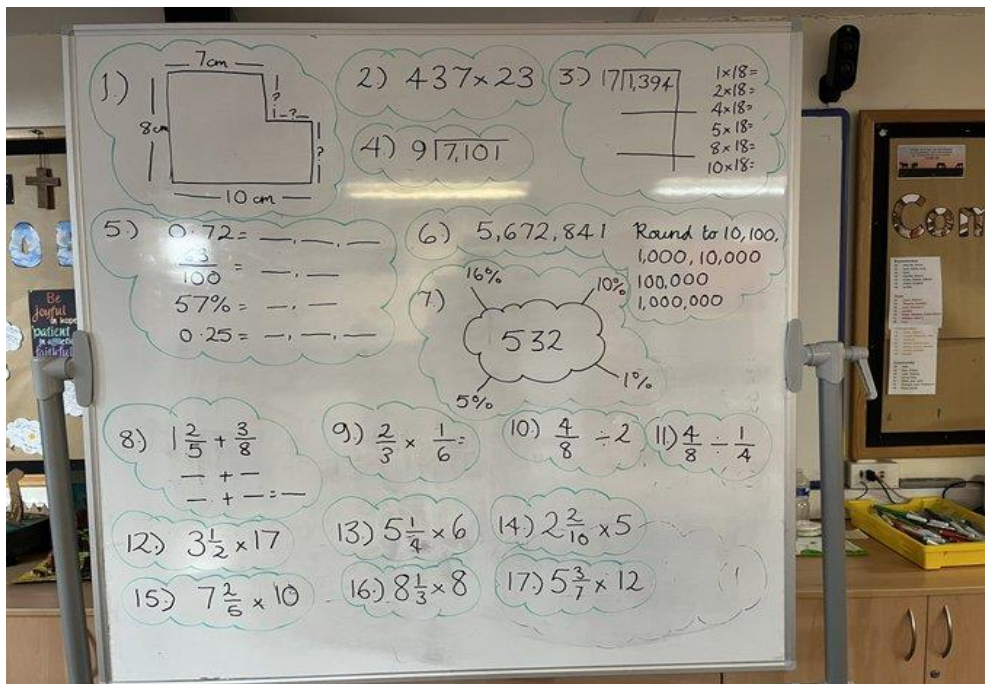 1.)
7cm
?
?
8cm
?
10 cm
2) 437 × 23
3) 17 1,394
1×18=
2×18=
4×18=
5×18=
8×18=
10×18=
4) 9 7,101
5) 0.72 = __, __, __
/100 = __, __
57% = __, __
0.25 = __, __, __
6) 5,672,841 Round to 10, 100,
1,000, 10,000
100,000
1,000,000
7)
16%
10%
532
5%
1%
8) 1 2/5 + 3/8
__ + __
__ + __ = __
9.) 2/3 × 1/6 =
10.) 4/8 ÷ 2
11.) 4/8 ÷ 1/4
12.) 3 1/2 × 17
13.) 5 1/4 × 6
14.) 2 2/10 × 5
15.) 7 2/5 × 10
16.) 8 1/3 × 8
17.) 5 3/7 × 12
Be
joyful
in hope
patient
in affliction
faithful
Com